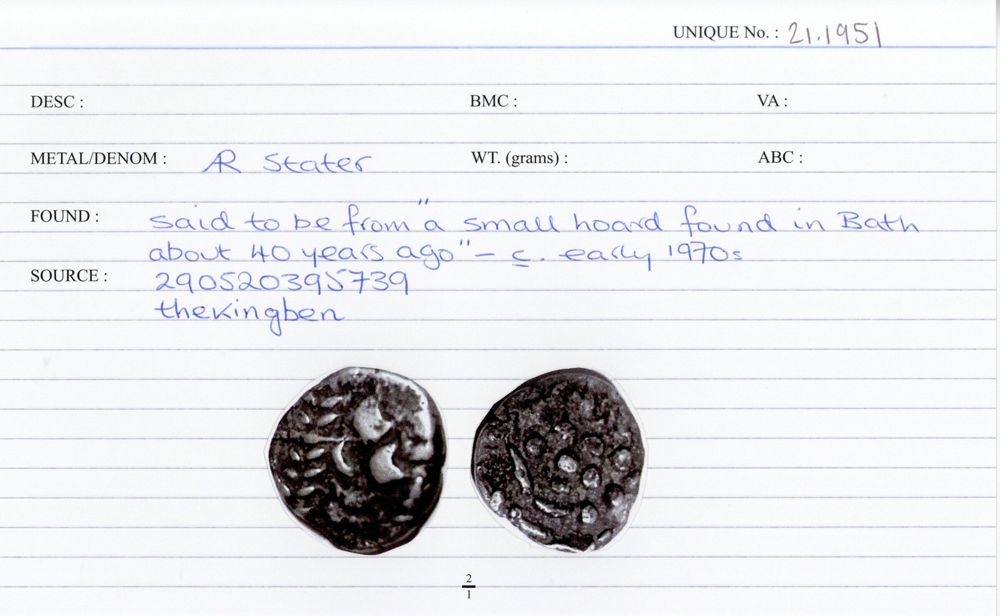 UNIQUE No. : 21.1951
DESC : BMC : VA :
METAL/DENOM : AR Stater WT. (grams) : ABC :
FOUND : said to be from "a small hoard found in Bath
about 40 years ago" – c. early 1970s
SOURCE : 290520395739
thekingben
2
1